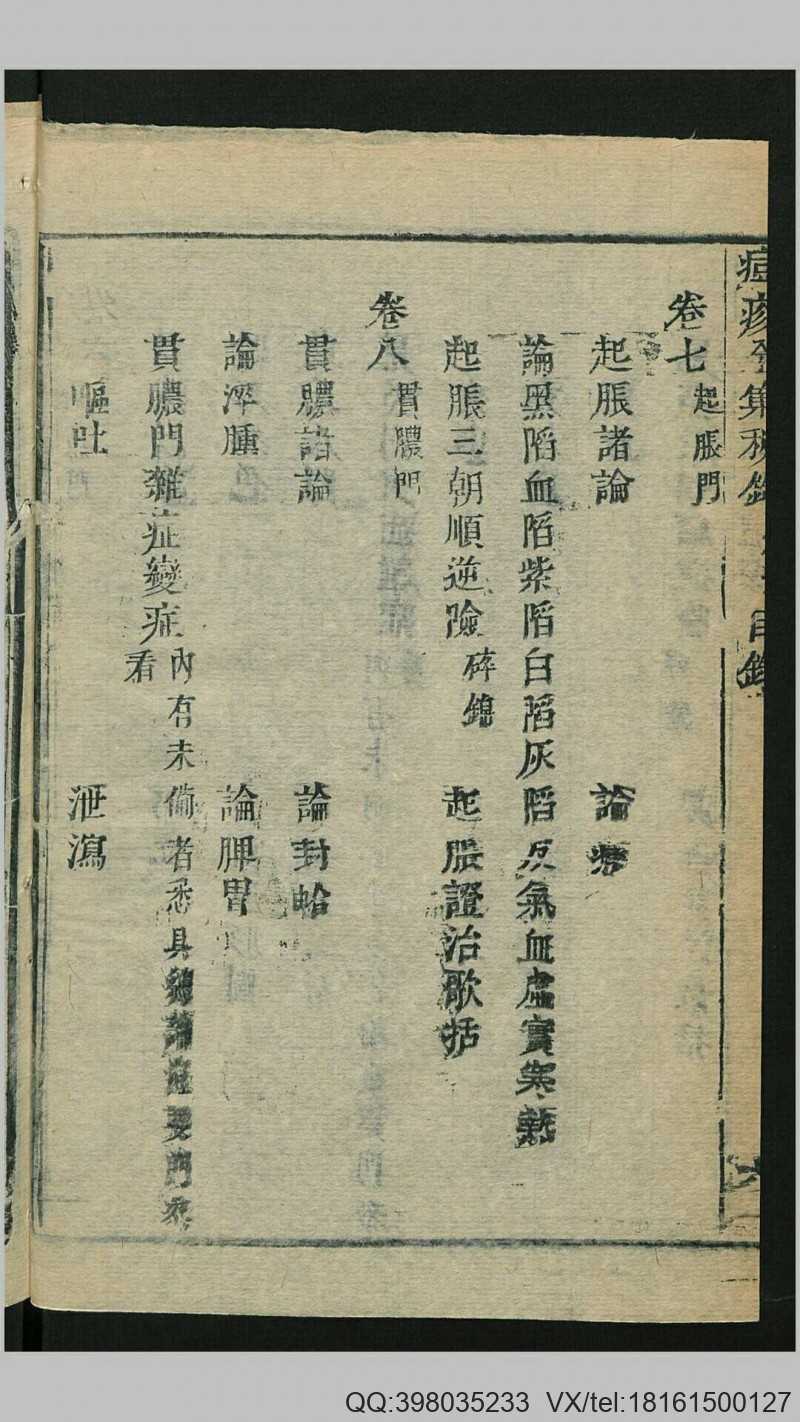 痘疹全集 目錄
卷七 起脹門
起脹諸論 論癢
論黑陷血陷紫陷白陷灰陷及氣血虛實寒熱
起脹三朝順逆險 碎錦 起脹證治歌括
卷八 貫膿門
貫膿諸論 論封蛤
論浮腫 論脾胃
貫膿門雜症變症 內有未備者悉具 症 門 看
嘔吐 泄瀉
QQ:398035233 VX/tel:18161500127